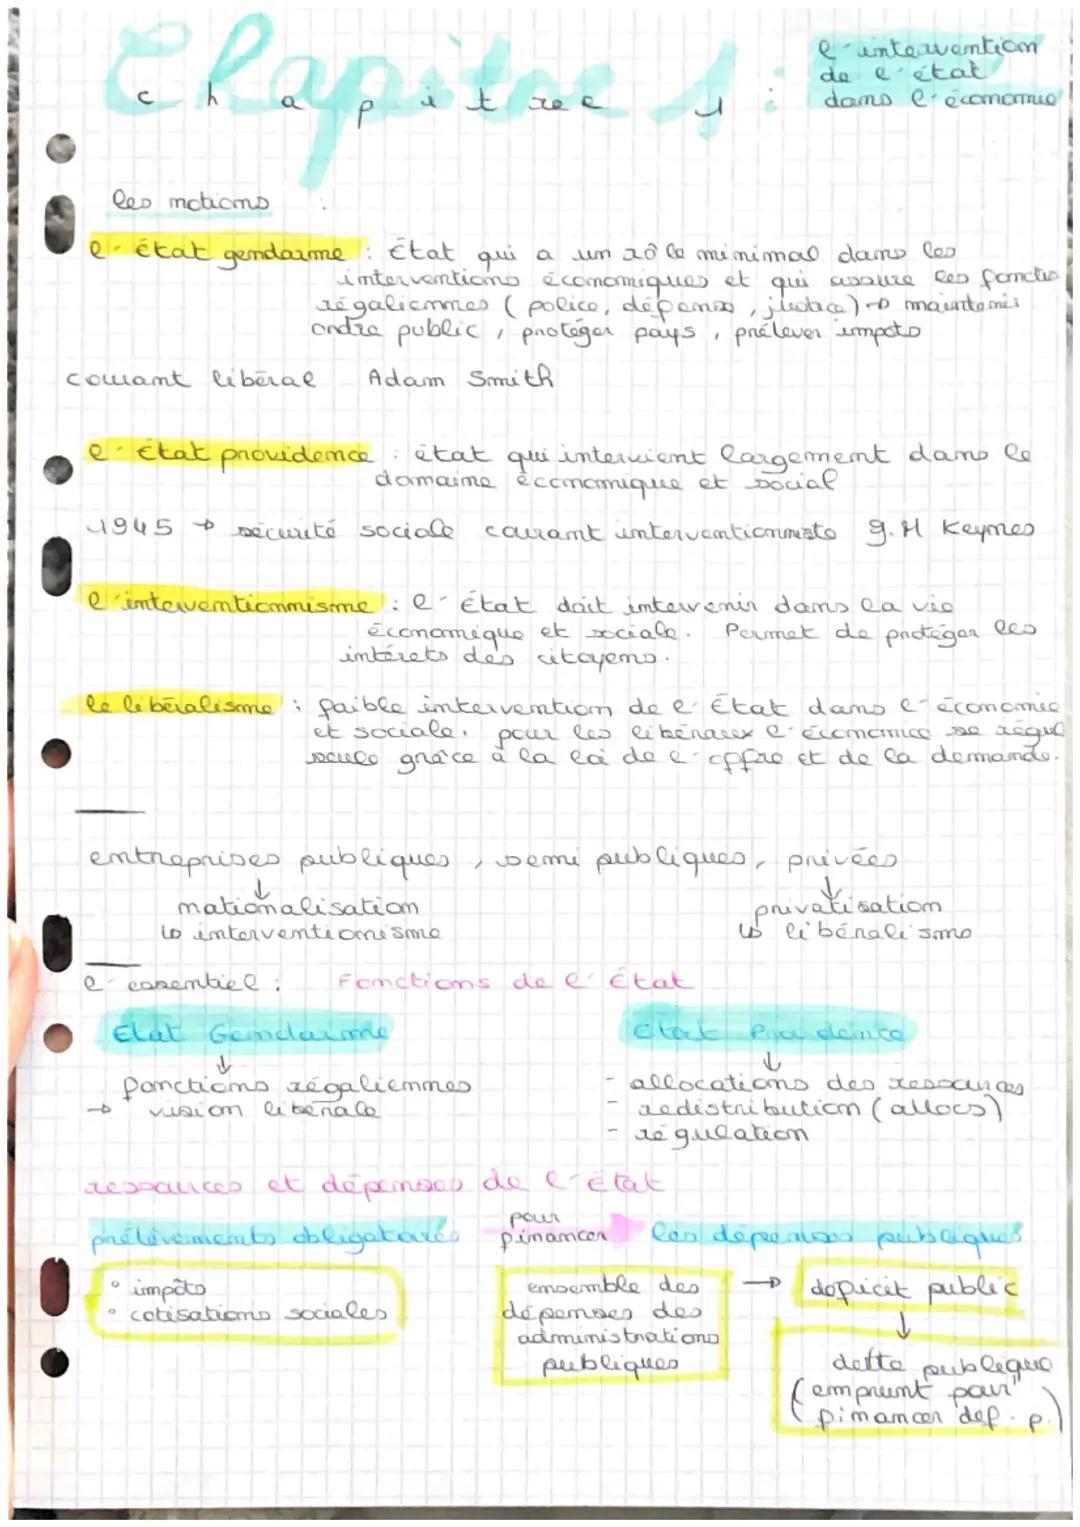 Chapitre 1 :
chapitre 1
l'intervention
de l'état
dans l'économie
les notions :
l'état gendarme : État qui a un rôle minimal dans les
interventions économiques et qui assure les fonctio
régaliennes (police, défense, justice) → maintenir
ordre public, protéger pays, prélever impots
courant libéral Adam Smith
l'État providence : état qui intervient largement dans le
domaine économique et social
1945 → sécurité sociale courant interventionniste J.M Keynes
l'interventionnisme : l'État doit intervenir dans la vie
économique et sociale. Permet de protéger les
intérets des citoyens.
le libéralisme : faible intervention de l'État dans l'économie
et sociale. pour les libéraux l'économie se régul
seule grâce à la loi de l'offre et de la demande.
entreprises publiques, semi publiques, privées
↓ ↓
nationalisation privatisation
↳ interventionisme ↳ libéralisme
l'essentiel : Fonctions de l'État
Etat Gendarme
↓
fonctions régaliennes
→ vision libérale
Etat Providence
↓
- allocations des ressources
- redistribution (allocs)
- régulation
ressources et dépenses de l'État
prélèvements obligatoires pour financer les dépenses publiques
° impôts
° cotisations sociales
ensemble des
dépenses des
administrations
publiques
→ deficit public
↓
dette publique
(emprunt pour
financer def. p.)